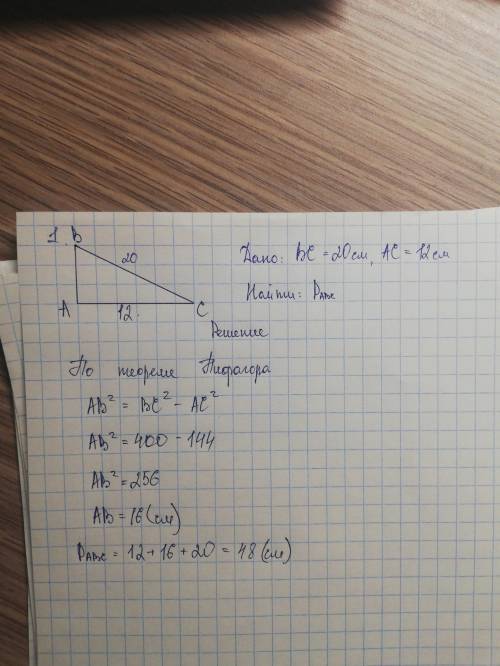 1. B
20
Дано: BC = 20 см, AC = 12 см
A
12.
C
Найти: P_ABC
Решение
По теореме Пифагора
AB² = BC² - AC²
AB² = 400 - 144
AB² = 256
AB = 16 (см)
P_ABC = 12 + 16 + 20 = 48 (см)